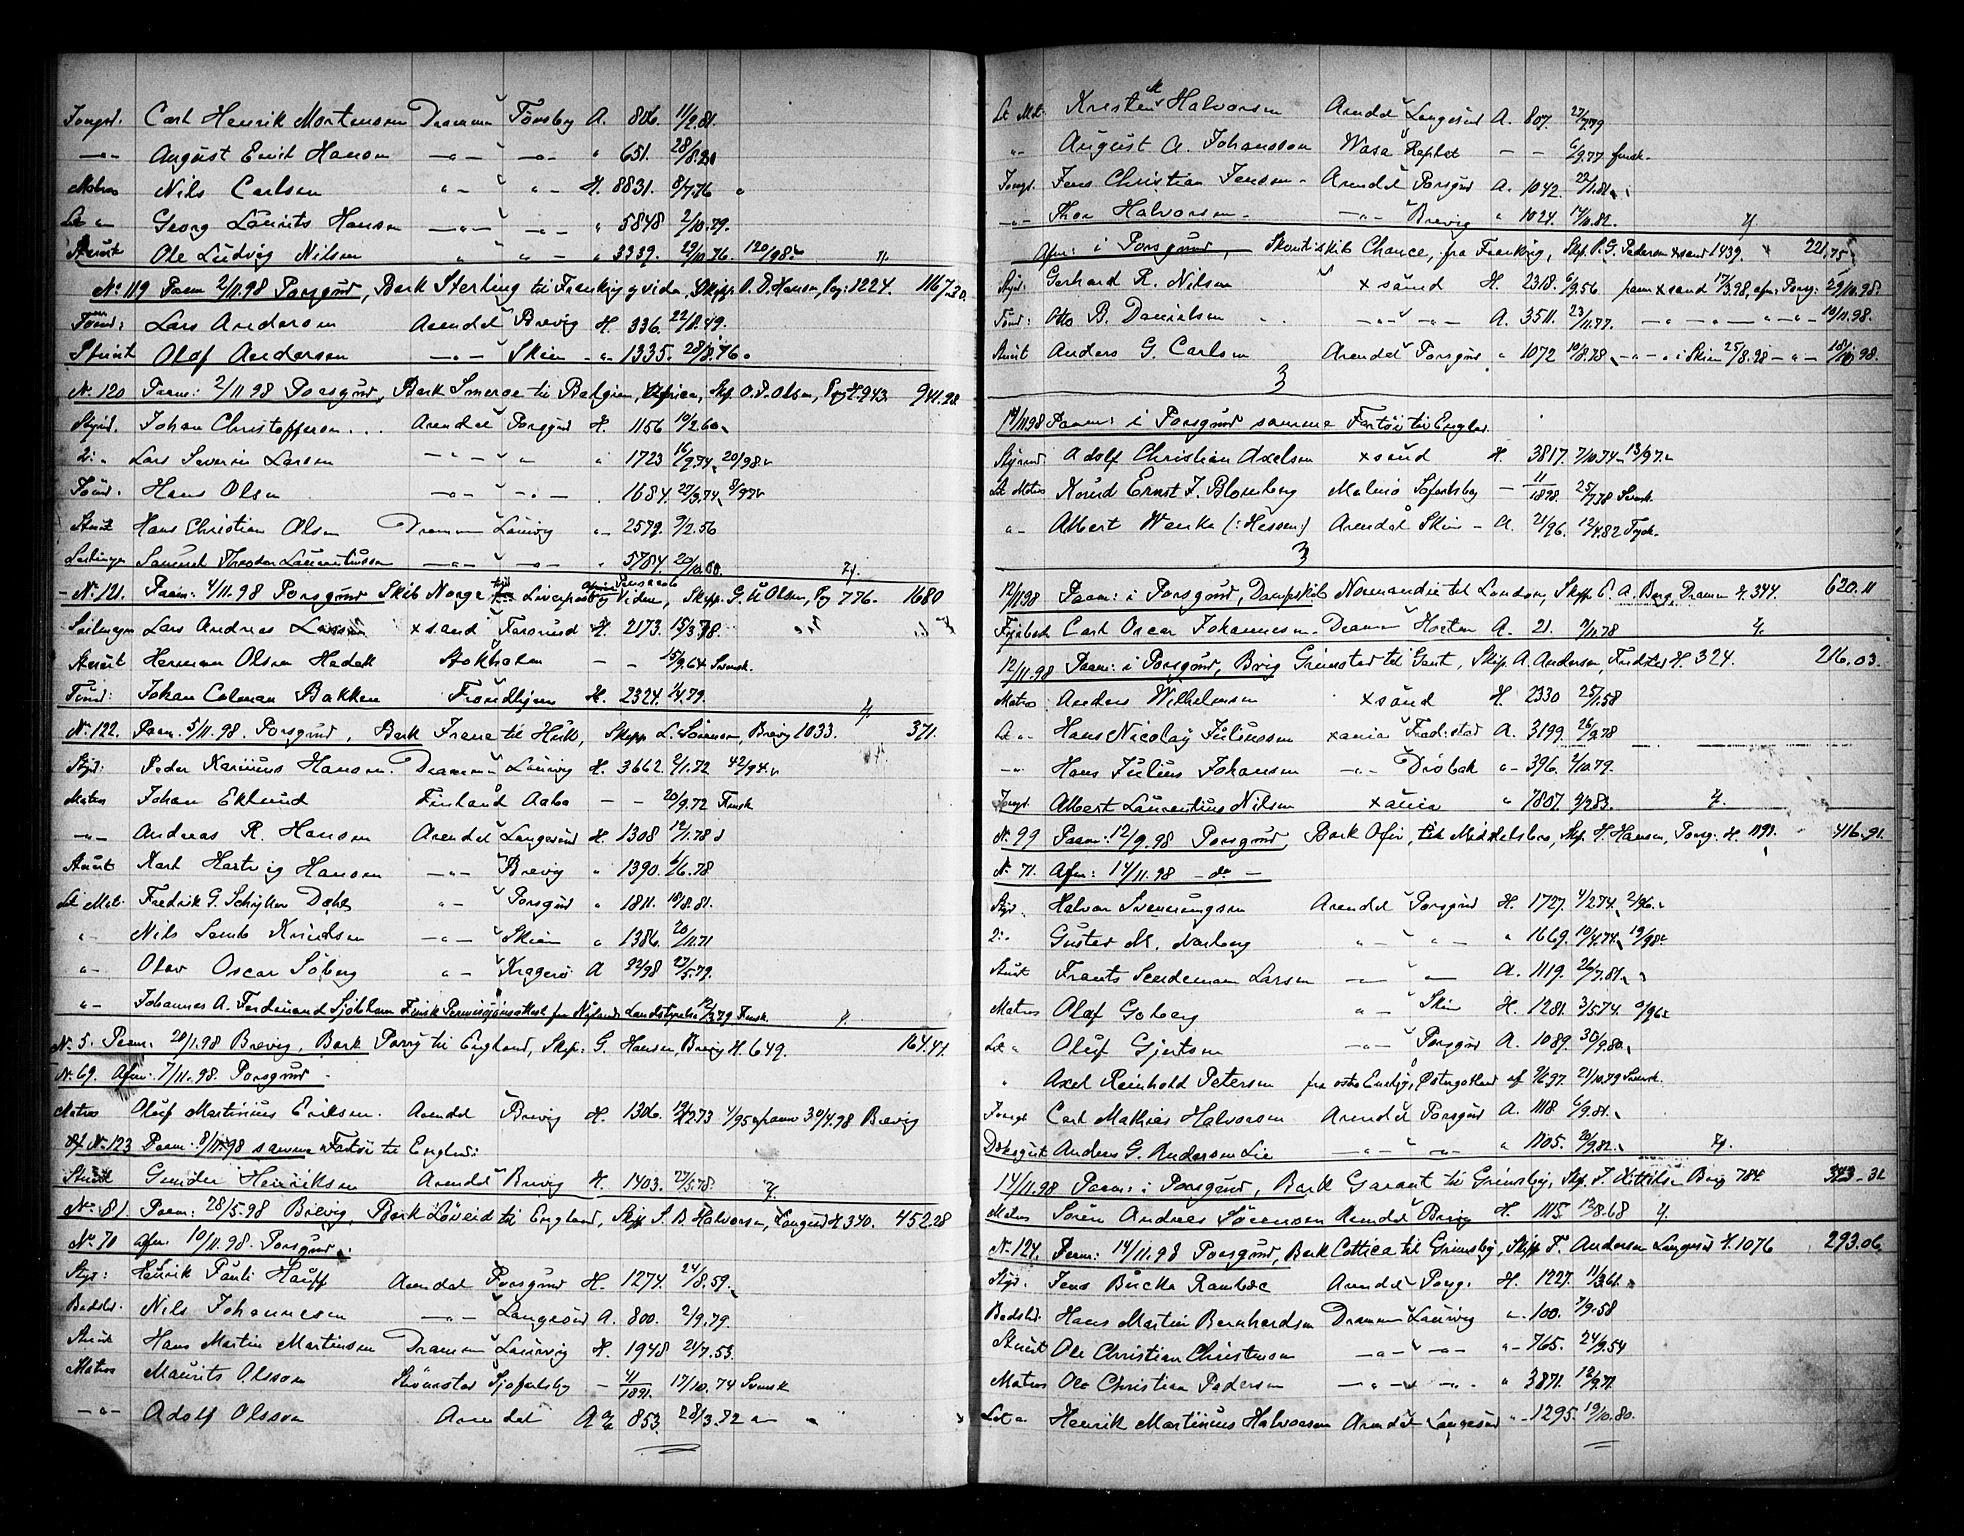 Jungd. Carl Henrik Mortensen Dramm Tönsbg A. 806. 11/2.81.
—„— August Emil Hansen —„— —„— „ 651. 28/8.
Matros Nils Carlsen „— „— H. 8831. 8/7.76
Let „— Georg Laurits Hansen —„— —„— „ 5848 2/10.79.
Stuert Ole Ludvig Nilsen „ „— „ 3339. 29/11.76. 120/98. 4.
No. 119 Paam 2/11.98 Porsgund, Bark Sterling til Frankrig o videre, Skipp. O. D. Hansen, Porg: 1224. 1167.30.
Tömd: Lars Andersen Arendal Brevig H. 336. 22/8.49.
Stuert Olaf Andersen —„— Skien „ 1335. 28/8.76.
No. 120 Paam: 2/11 98 Porsgund, Bark Smerge til Belgien, Africa, Skp. O. P. Olsen, Porg H. 943. 941.92.
Styrd. Johan Christoffersen Arendal Porsgund H. 1156 10/2.60.
2: „ Lars Severin Larsen —„— „ „— „ 1723 16/9.74. 20/98.
Tömd. Hans Olsen —„— —„— . 1684. 27/3.74. 8/97.
Stuert Hans Christian Olsen Dramm Laurvig „— 2579. 9/2.56
Seilmager Samuel Theodor Laurentiussen —„— —„— „ 5784. 20/10.80. 4.
No. 121. Paam: 4/11.98 Porsgund Skib Norge til Liverpool og Videre, Skipp. G. U. Olsen, Porg 776. 1680
Seilmagm Lars Andreas Larssen xsand Farsund H. 2173. 15/3.78.
Stuert Herman Olsen Hedek Stokholm — — 15/9.64 Svensk.
Tömd: Johan Colman Bakken Trondhjem H. 2324. 1/4.79. 4.
No. 122. Paam. 5/11.98. Porsgund, Bark Freme til Hull, Skipp L. Sörensen, Brevig 1033. 371.
Styrd: Peder Marinus Hansen. Dramm Laurvig H. 3662. 2/1.72 42/94.
Matros Johan Eklund Finland Aabo — — 20/9.72 Finsk
—„— Andreas R. Hansen Arendal Langesund H. 1308 12/1.78
Stuert Karl Hartvig Hansen —„— Brevig „ 1390. 6/6.78
Let Mat. Fredrik G. Schytter Dahl „— Porsgund „ 1811. 10/8.81.
„ Nils Lamb Knudsen —„— Skien „ 1386. 20/11.71
„— Olav Oscar Söberg „— Kragerö A 92/98 23/5.79.
„— Johannes A. Ferdinand Sjöblom Finsk Permisjonsattest fra Nylands Landstyrelse 12/3.79 Finsk. 4.
No. 5. Paam: 20/1.98 Brevig, Bark Porg til England, Skp. G. Hansen, Brevig H. 649. 164.47.
No. 69. Afm: 7/11.98. Porsgund —
Matros Oluf Martinius Eriksen. Arendal Brevig H. 1306. 12/2.73 4/95 paam 30/4.98 Brevig
No. 123 Paam: 8/11.98 samme Fartöi til England:
Stuert Gunder Henriksen Arendal Brevig H. 1403. 27/5.78 4.
No. 81. Paam: 28/5.98 Brevig, Bark Löveid til England, Skp S. B. Halvorsen, Langsund H 340. 452.28
No. 70 afm 10/11.98. Porsgund.
Styr: Henrik Pauli Hauff Arendal Porsgund H. 1274. 24/8.59.
Bedsld. Nils Johannesen —„— Langesund A. 800. 2/9.79.
Stuert Hans Martin Martinsen Dramm Laurvig H. 1948 24/7.53.
Matros Maurits Olsson Strömstad Sjöfartsbg — 41/1891. 17/10.74 Svensk
—„— Adolf Olsson Arendal A 853. 28/3.82
Let Mat. Kristen Halvorsen Arendal Langesund A. 807. 27/7.79
„ August A. Johansson Wasa Replot — — 6/9.77 finsk.
Jungd. Jens Christian Jensen Arendal Porsgund A. 1042. 22/1.81.
„ Thor Halvorsen —„— Brevig „ 1024. 14/10.82. 4.
Afm: i Porsgund, Skontskib Chance, fra Frankrig, Skp. P. G. Pedersen xsand 1439. 221.75
Styrd. Gerhard R. Nilsen xsand H. 2318. 6/9.56 paam xsand 17/3.98, afm: Porsg: 29/10.98.
Tömd: Otto B. Danielsen —„— —„— A. 3511. 23/11.77. —„— —„— 10/11.98.
Stuert Anders G. Carlsen Arendal Porsgund „ 1072 10/8.78 —„— i Skien 25/8.98 —„— 18/10 98.
3
14/11.98 Paam: i Porsgund samme Fartöi til Englnd.
Styrmd Adolf Christian Axelsen xsand H. 3817. 7/10.74 13/97.
Let Matros Knud Ernst F. Blomberg Malmö Sjöfartsbg — 11/1898. 25/7.78 Svensk.
„ Albert Wenke (: Hessen:) Arendal Skien — A. 21/96. 12/4.82 Tysk.
3
12/11.98 Paam: i Porsgund, Dampskib Normandie til London, Skipp C. A. Berg, Dramm H. 344. 620.11
Fyrböd. Carl Oscar Johannesen. Dramm Horten A. 21. 9/11.78 4.
12/11.98 Paam: i Porsgund, Brig Grimstad til Gent, Skip. A. Andersen, Fredstad H. 324. 216.03.
Matros Anders Wilhelmsen xsand H. 2330 25/1.58
Let „ Hans Nicolaj Juliussen xania Fredrstad A. 3199. 26/9.78
—„— Hans Julius Johansen —„— Dröbak „ 396. 4/10.79.
Jungd. Albert Laurentius Nilsen xania „ 7807 9/7.83. 4.
No. 99 Paam: 12/9.98 Porsgund, Bark Afir, til Middelsbro, Skp. H. Hansen, Porsg: H. 1191. 416.91.
No. 71. Afm: 14/11.98 — do —
Styd. Halvor Sveinungsen Arendal Porsgund H. 1727. 4/2.74. 2/96.
2: Gustav M. Narberg „— „— „ 1669. 10/4.74. 19/98.
Stuert Frants Lendemann Larsen — — A. 1119. 26/7.81.
Matros Olaf Goberg „— Skien H. 1281. 31/5.74. 9/96.
Let „ Oluf Gjertsen —„— Porsgund A. 1089. 30/9.80.
„ Axel Reinhold Petersen fra östre Eneby, Östergotland af 7/6 97. 21/10.79 Svensk.
Jungd Carl Mathias Halvorsen Arendal Porsgund A. 1118 6/9.81.
Dæksgut Anders G. Andersen Lie —„— —„— „ 1105. 20/9.82. 4.
14/11.98 Paam: i Porsgund, Bark Garant til Grimsby, Skp. T. Kittilsen Brvg 784. 343.31
Matros Sören Andreas Sörensen Arendal Brevig H. 1115. 12/8.68 4.
No. 124. Paam: 14/11.98 Porsgund, Bark Cottica til Grimsby, Skipp F. Andersen Langesund H. 1076 293.06
Styd. Jens Bucka Rambæc Arendal Porsg. H. 1227. 11/3.61.
Bedsld. Hans Martin Bernhardsen Dramm Laurvig „ 100. 7/9.58
Stuert Ole Christian Christensen —„— —„— „— 765. 24/9.54
Matros Ole Christian Pedersen —„— —„— „ 3871. 12/9.77.
Let „ Henrik Martinius Halvorsen Arendal Langesund „ 1295. 19/10.80.